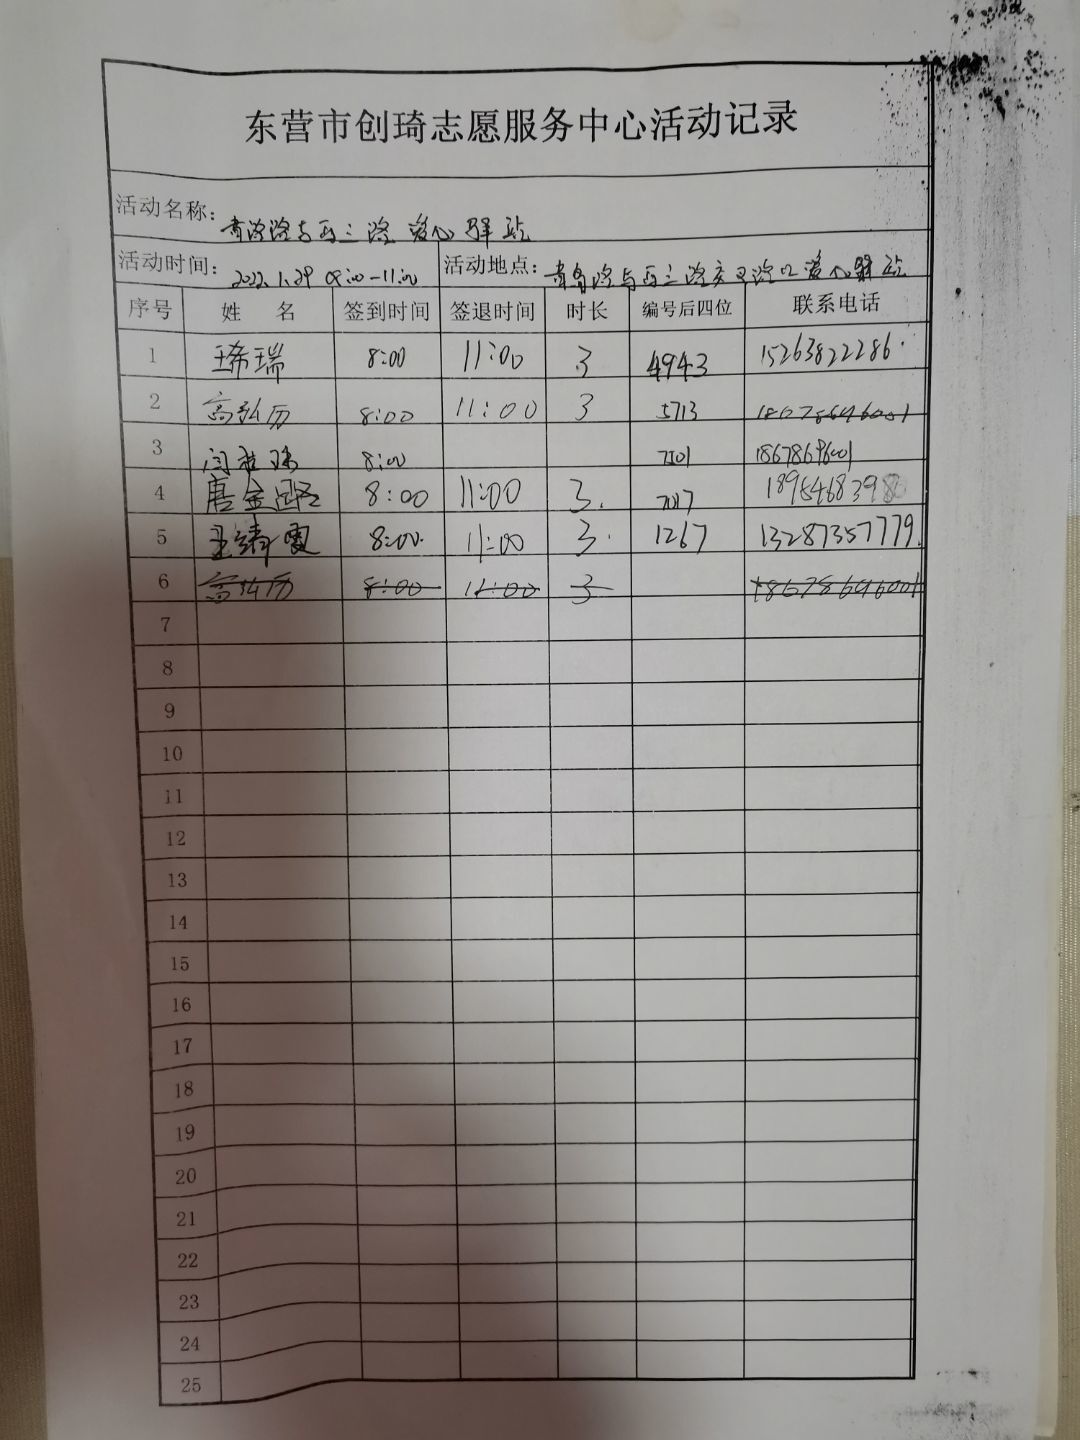 东营市创琦志愿服务中心活动记录
活动名称: 路与西三路 爱心驿站
活动时间: 2022.1.29 08:00-11:00 活动地点: 路与西三路交叉路口爱心驿站
序号 姓名 签到时间 签退时间 时长 编号后四位 联系电话
1 王希瑞 8:00 11:00 3 4943 15263822286
2 高弘历 8:00 11:00 3 5713 18678696001
3 闫 8:00 7501 18678696001
4 唐金 8:00 11:00 3. 18954683980
5 王靖雯 8:00. 11:00 3. 1267 13287357779.
6 高弘历 8:00 11:00 3 18678696001
7
8
9
10
11
12
13
14
15
16
17
18
19
20
21
22
23
24
25